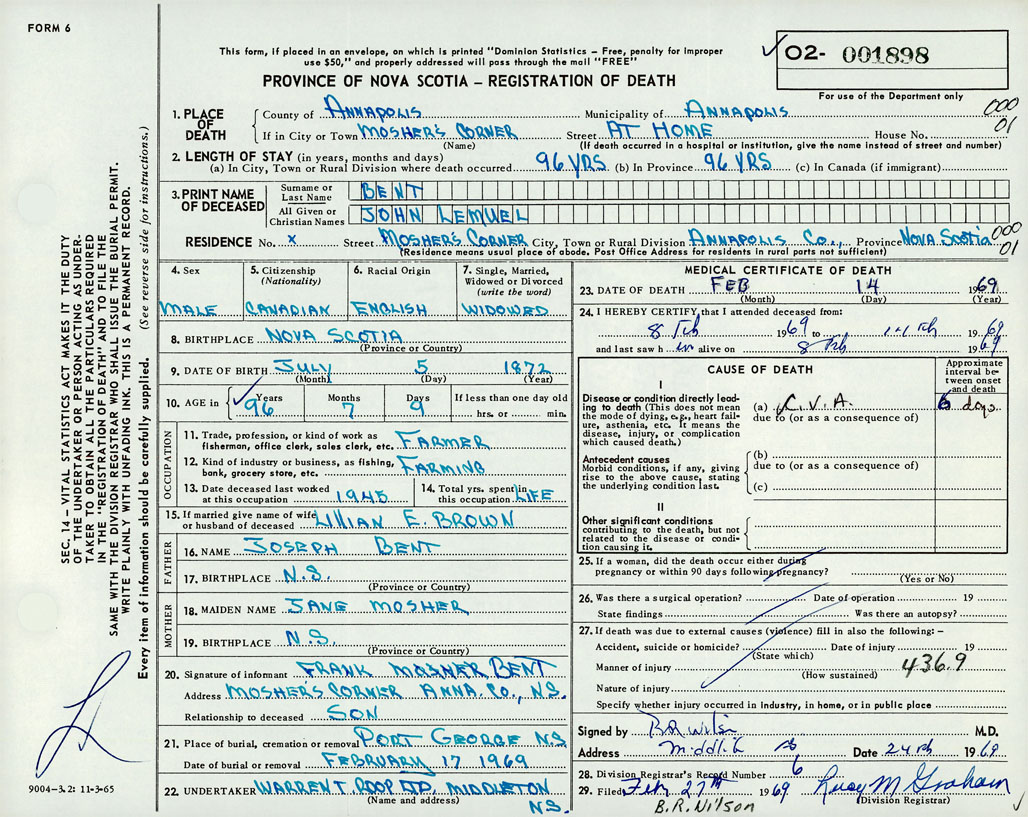 FORM 6
This form, if placed in an envelope, on which is printed "Dominion Statistics – Free, penalty for improper
use $50," and properly addressed will pass through the mail "FREE"
PROVINCE OF NOVA SCOTIA – REGISTRATION OF DEATH
O2- 001898
For use of the Department only
000
01
1. PLACE OF DEATH
County of ANNAPOLIS Municipality of ANNAPOLIS
If in City or Town MOSHER'S CORNER Street AT HOME House No.
(Name) (If death occurred in a hospital or institution, give the name instead of street and number)
2. LENGTH OF STAY (in years, months and days)
(a) In City, Town or Rural Division where death occurred 96 YRS (b) In Province 96 YRS (c) In Canada (if immigrant)
3. PRINT NAME OF DECEASED
Surname or Last Name BENT
All Given or Christian Names JOHN LEMUEL
RESIDENCE No. x Street MOSHER'S CORNER City, Town or Rural Division ANNAPOLIS CO., Province NOVA SCOTIA
000
01
(Residence means usual place of abode. Post Office Address for residents in rural parts not sufficient)
4. Sex
MALE
5. Citizenship
(Nationality)
CANADIAN
6. Racial Origin
ENGLISH
7. Single, Married,
Widowed or Divorced
(write the word)
WIDOWED
8. BIRTHPLACE NOVA SCOTIA
(Province or Country)
9. DATE OF BIRTH JULY 5 1872
(Month) (Day) (Year)
10. AGE in
Years Months Days If less than one day old
96 7 9 hrs. or min.
OCCUPATION
11. Trade, profession, or kind of work as
fisherman, office clerk, sales clerk, etc. FARMER
12. Kind of industry or business, as fishing,
bank, grocery store, etc. FARMING
13. Date deceased last worked
at this occupation 1945
14. Total yrs. spent in
this occupation LIFE
15. If married give name of wife
or husband of deceased LILLIAN E. BROWN
FATHER
16. NAME JOSEPH BENT
17. BIRTHPLACE N.S.
(Province or Country)
MOTHER
18. MAIDEN NAME JANE MOSHER
19. BIRTHPLACE N.S.
(Province or Country)
20. Signature of informant FRANK MOSHER BENT
Address MOSHER'S CORNER ANNA. CO., N.S.
Relationship to deceased SON
21. Place of burial, cremation or removal PORT GEORGE NS
Date of burial or removal FEBRUARY 17 1969
22. UNDERTAKER WARREN T. ROOP LTD. MIDDLETON
(Name and address) NS.
MEDICAL CERTIFICATE OF DEATH
23. DATE OF DEATH FEB 14 1969
(Month) (Day) (Year)
24. I HEREBY CERTIFY that I attended deceased from:
8 Feb 1969 to 14 Feb 1969
and last saw him alive on 8 Feb 1969
CAUSE OF DEATH
Approximate
interval be-
tween onset
and death
I
Disease or condition directly lead-
ing to death (This does not mean
the mode of dying, e.g., heart fail-
ure, asthenia, etc. It means the
disease, injury, or complication
which caused death.)
(a) C.V.A. 6 days
due to (or as a consequence of)
Antecedent causes
Morbid conditions, if any, giving
rise to the above cause, stating
the underlying condition last.
(b)
due to (or as a consequence of)
(c)
II
Other significant conditions
contributing to the death, but not
related to the disease or condi-
tion causing it.
25. If a woman, did the death occur either during
pregnancy or within 90 days following pregnancy?
(Yes or No)
26. Was there a surgical operation? Date of operation 19
State findings Was there an autopsy?
27. If death was due to external causes (violence) fill in also the following: –
Accident, suicide or homicide? Date of injury 19
(State which)
Manner of injury 436.9
(How sustained)
Nature of injury
Specify whether injury occurred in industry, in home, or in public place
Signed by M.D.
Address Date 24 Feb 1969
28. Division Registrar's Record Number 6
29. Filed Feb 27th 1969 Lucy M Graham
(Division Registrar)
B.R. Wilson
SEC. 14 – VITAL STATISTICS ACT MAKES IT THE DUTY
OF THE UNDERTAKER OR PERSON ACTING AS UNDER-
TAKER TO OBTAIN ALL THE PARTICULARS REQUIRED
IN THE "REGISTRATION OF DEATH" AND TO FILE THE
SAME WITH THE DIVISION REGISTRAR WHO SHALL ISSUE THE BURIAL PERMIT.
WRITE PLAINLY WITH UNFADING INK. THIS IS A PERMANENT RECORD.
Every item of information should be carefully supplied. (See reverse side for instructions.)
9004-3.2: 11-3-65